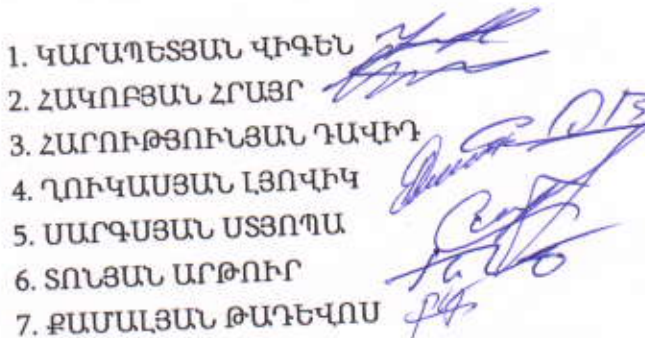 1. ԿԱՐԱՊԵՏՅԱՆ ՎԻԳԵՆ
2. ՀԱԿՈԲՅԱՆ ՀՐԱՅՐ
3. ՀԱՐՈՒԹՅՈՒՆՅԱՆ ԴԱՎԻԴ
4. ՂՈՒԿԱՍՅԱՆ ԼՅՈՎԻԿ
5. ՍԱՐԳՍՅԱՆ ՍՏՅՈՊԱ
6. ՏՈՆՅԱՆ ԱՐԹՈՒՐ
7. ՔԱՄԱԼՅԱՆ ԹԱԴԵՎՈՍ